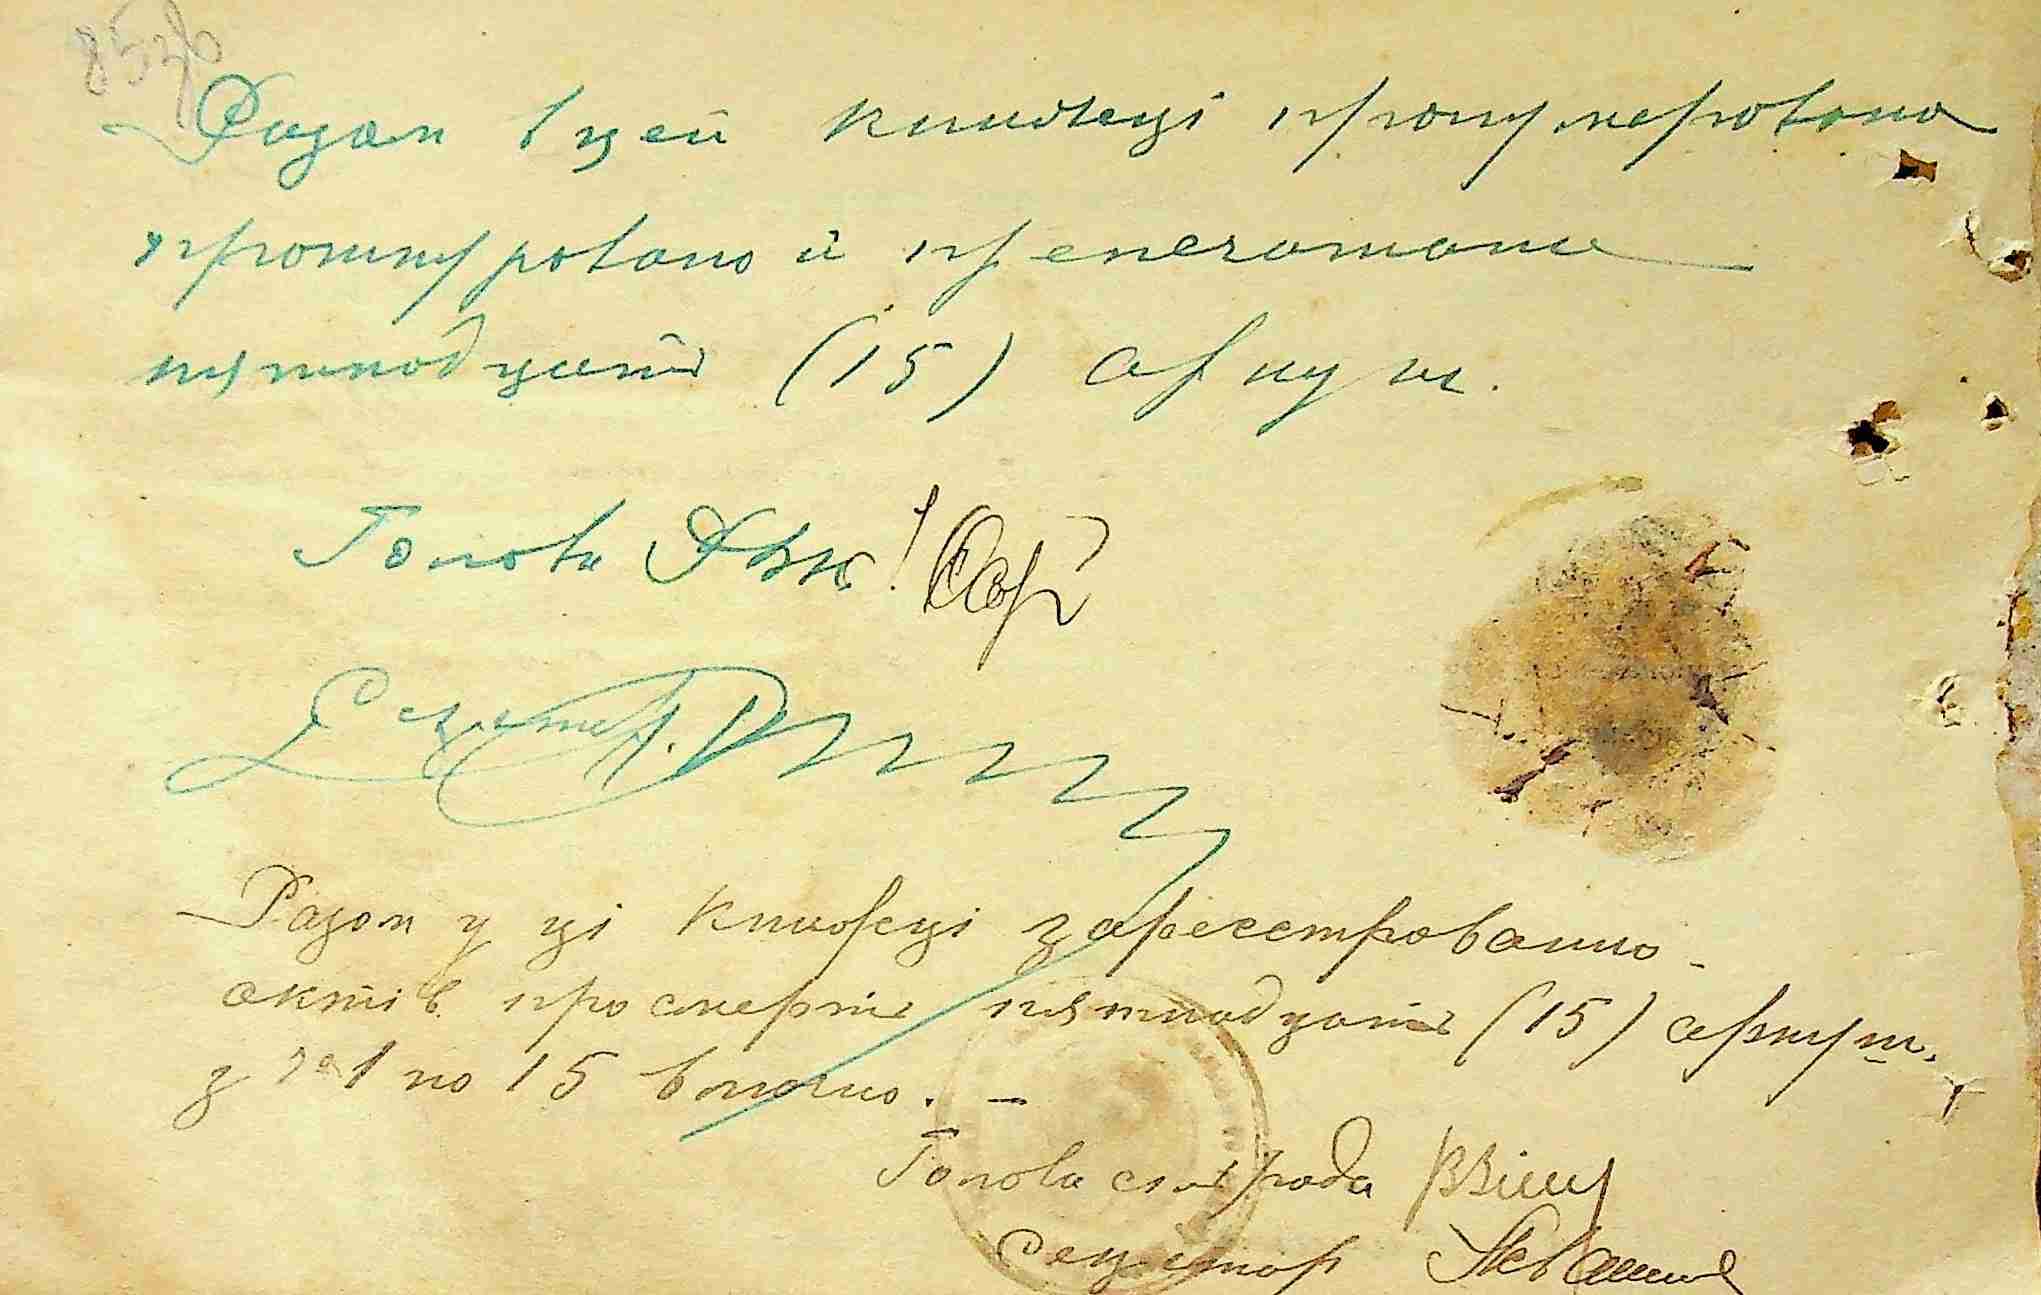 Разом в цей книжеці пронумеровано
прошнуровано й препечатано
пятнодцять (15) аркуш.
Голова РВК
Секретар
Разом у ці книжеці зареєстрованно
актів про смерть пятнодцять (15) аркуш.
з №1 по 15 включно. —
Голова сільради
Секретар